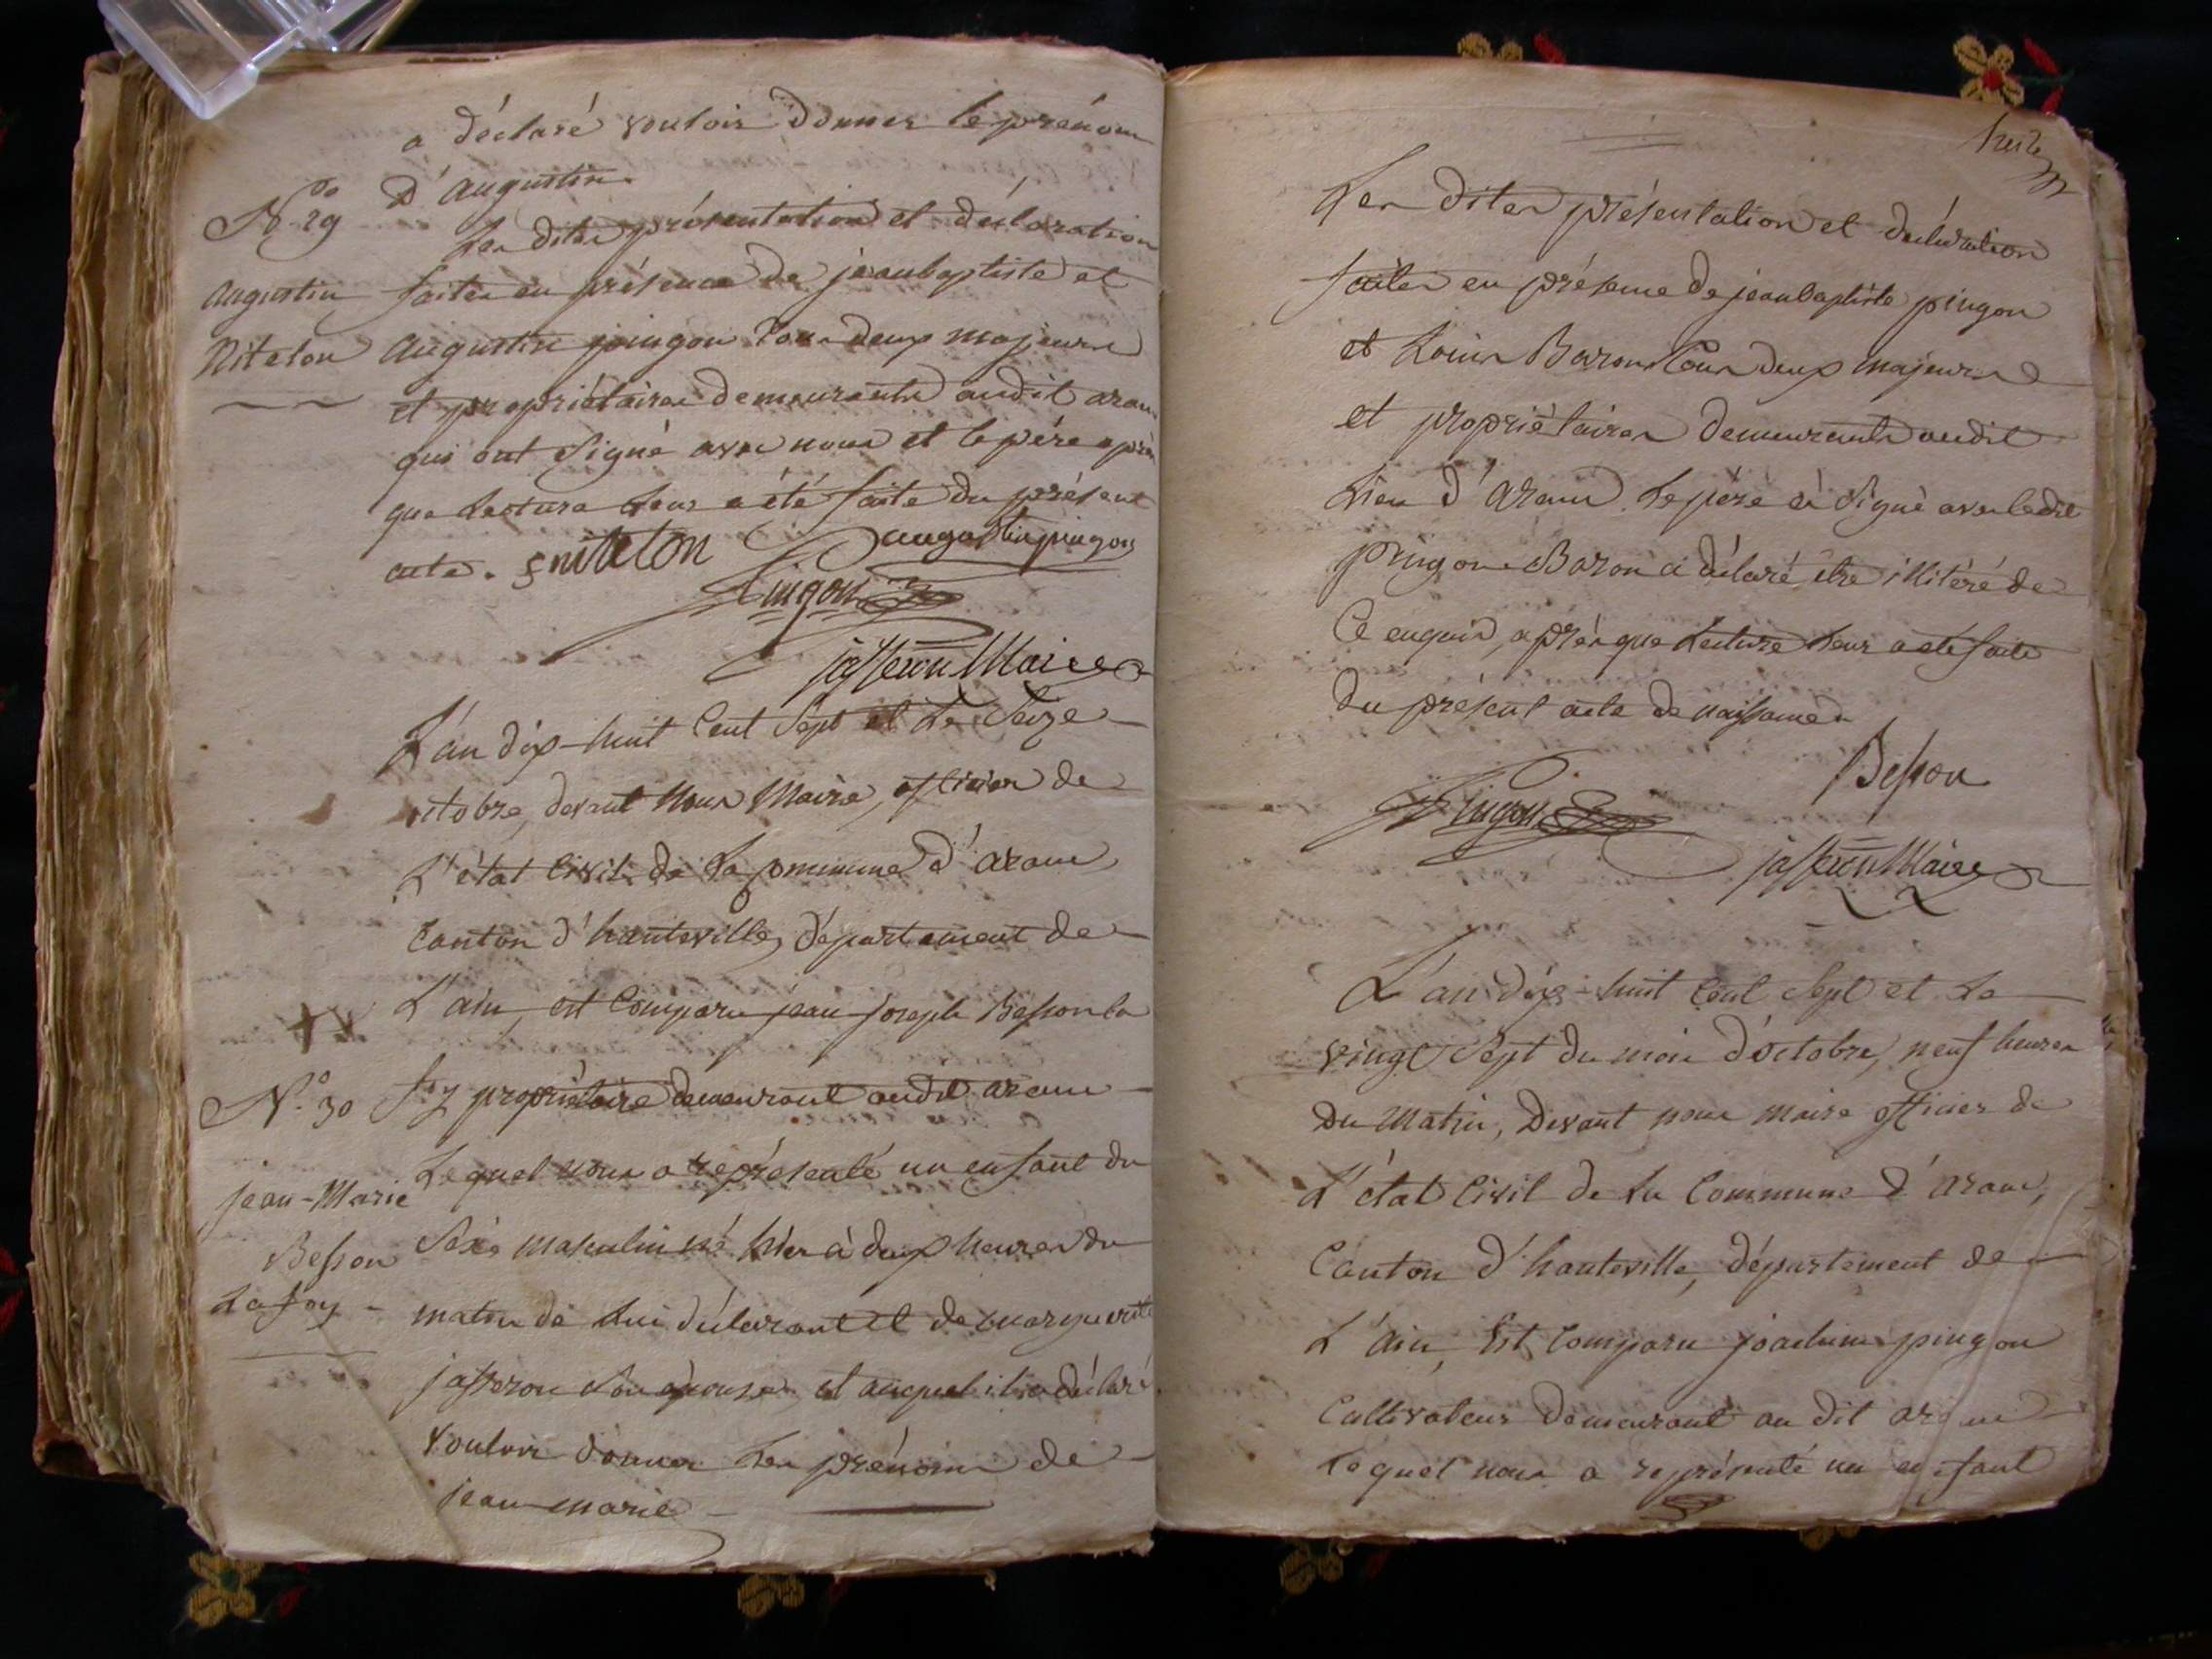 a déclaré vouloir donner le prénom
d'augustin.
N.o 29
Les dites présentation et déclaration
augustin
faites en présence de jeanbaptiste et
Niteton
augustin pingon tous deux majeurs
et propriétaires demeurants audit aran
qui ont signé avec nous et le père après
que Lecture Leur a été faite du présent
acte. niteton augustin pingon
Pingon
jasseron Maire
L'an dix-huit Cent Sept et Le Seize
octobre, devant Nous Maire, officier de
L'état Civil de La Commune d'aranc
Canton d'hauteville, département de
L'ain, est Comparu jean joseph Besson la
N.o 30
foy propriétaire demeurant audit aranc
Lequel nous a représenté un enfant du
jean-Marie
Besson
Séxe masculin né hier à deux heures du
Lafoy
matin de Lui déclarant et de marguerite
jasseron Son épouse, et auquel il a déclaré
vouloir donner Les prénoms de
jean marie
huit
Les dites présentation et déclaration
faites en présence de jeanbaptiste pingon
et Louis Baron tous deux majeurs
et propriétaires demeurants audit
Lieu d'aranc. Le père à Signé avec ledit
pingon. Baron à déclaré être illitéré de
Ce enquis, après que Lecture Leur a été faite
du présent acte de naissance.
Besson
Pingon
jasseron Maire
L'an dix-huit Cent Sept et Le
vingt Sept du mois d'octobre, neuf heures
du Matin, Devant nous maire officier de
L'état Civil de La Commune d'aranc,
Canton d'hauteville, département de
L'ain, Est Comparu joachim pingon
Cultivateur demeurant au dit aranc
Lequel nous a représenté un enfant